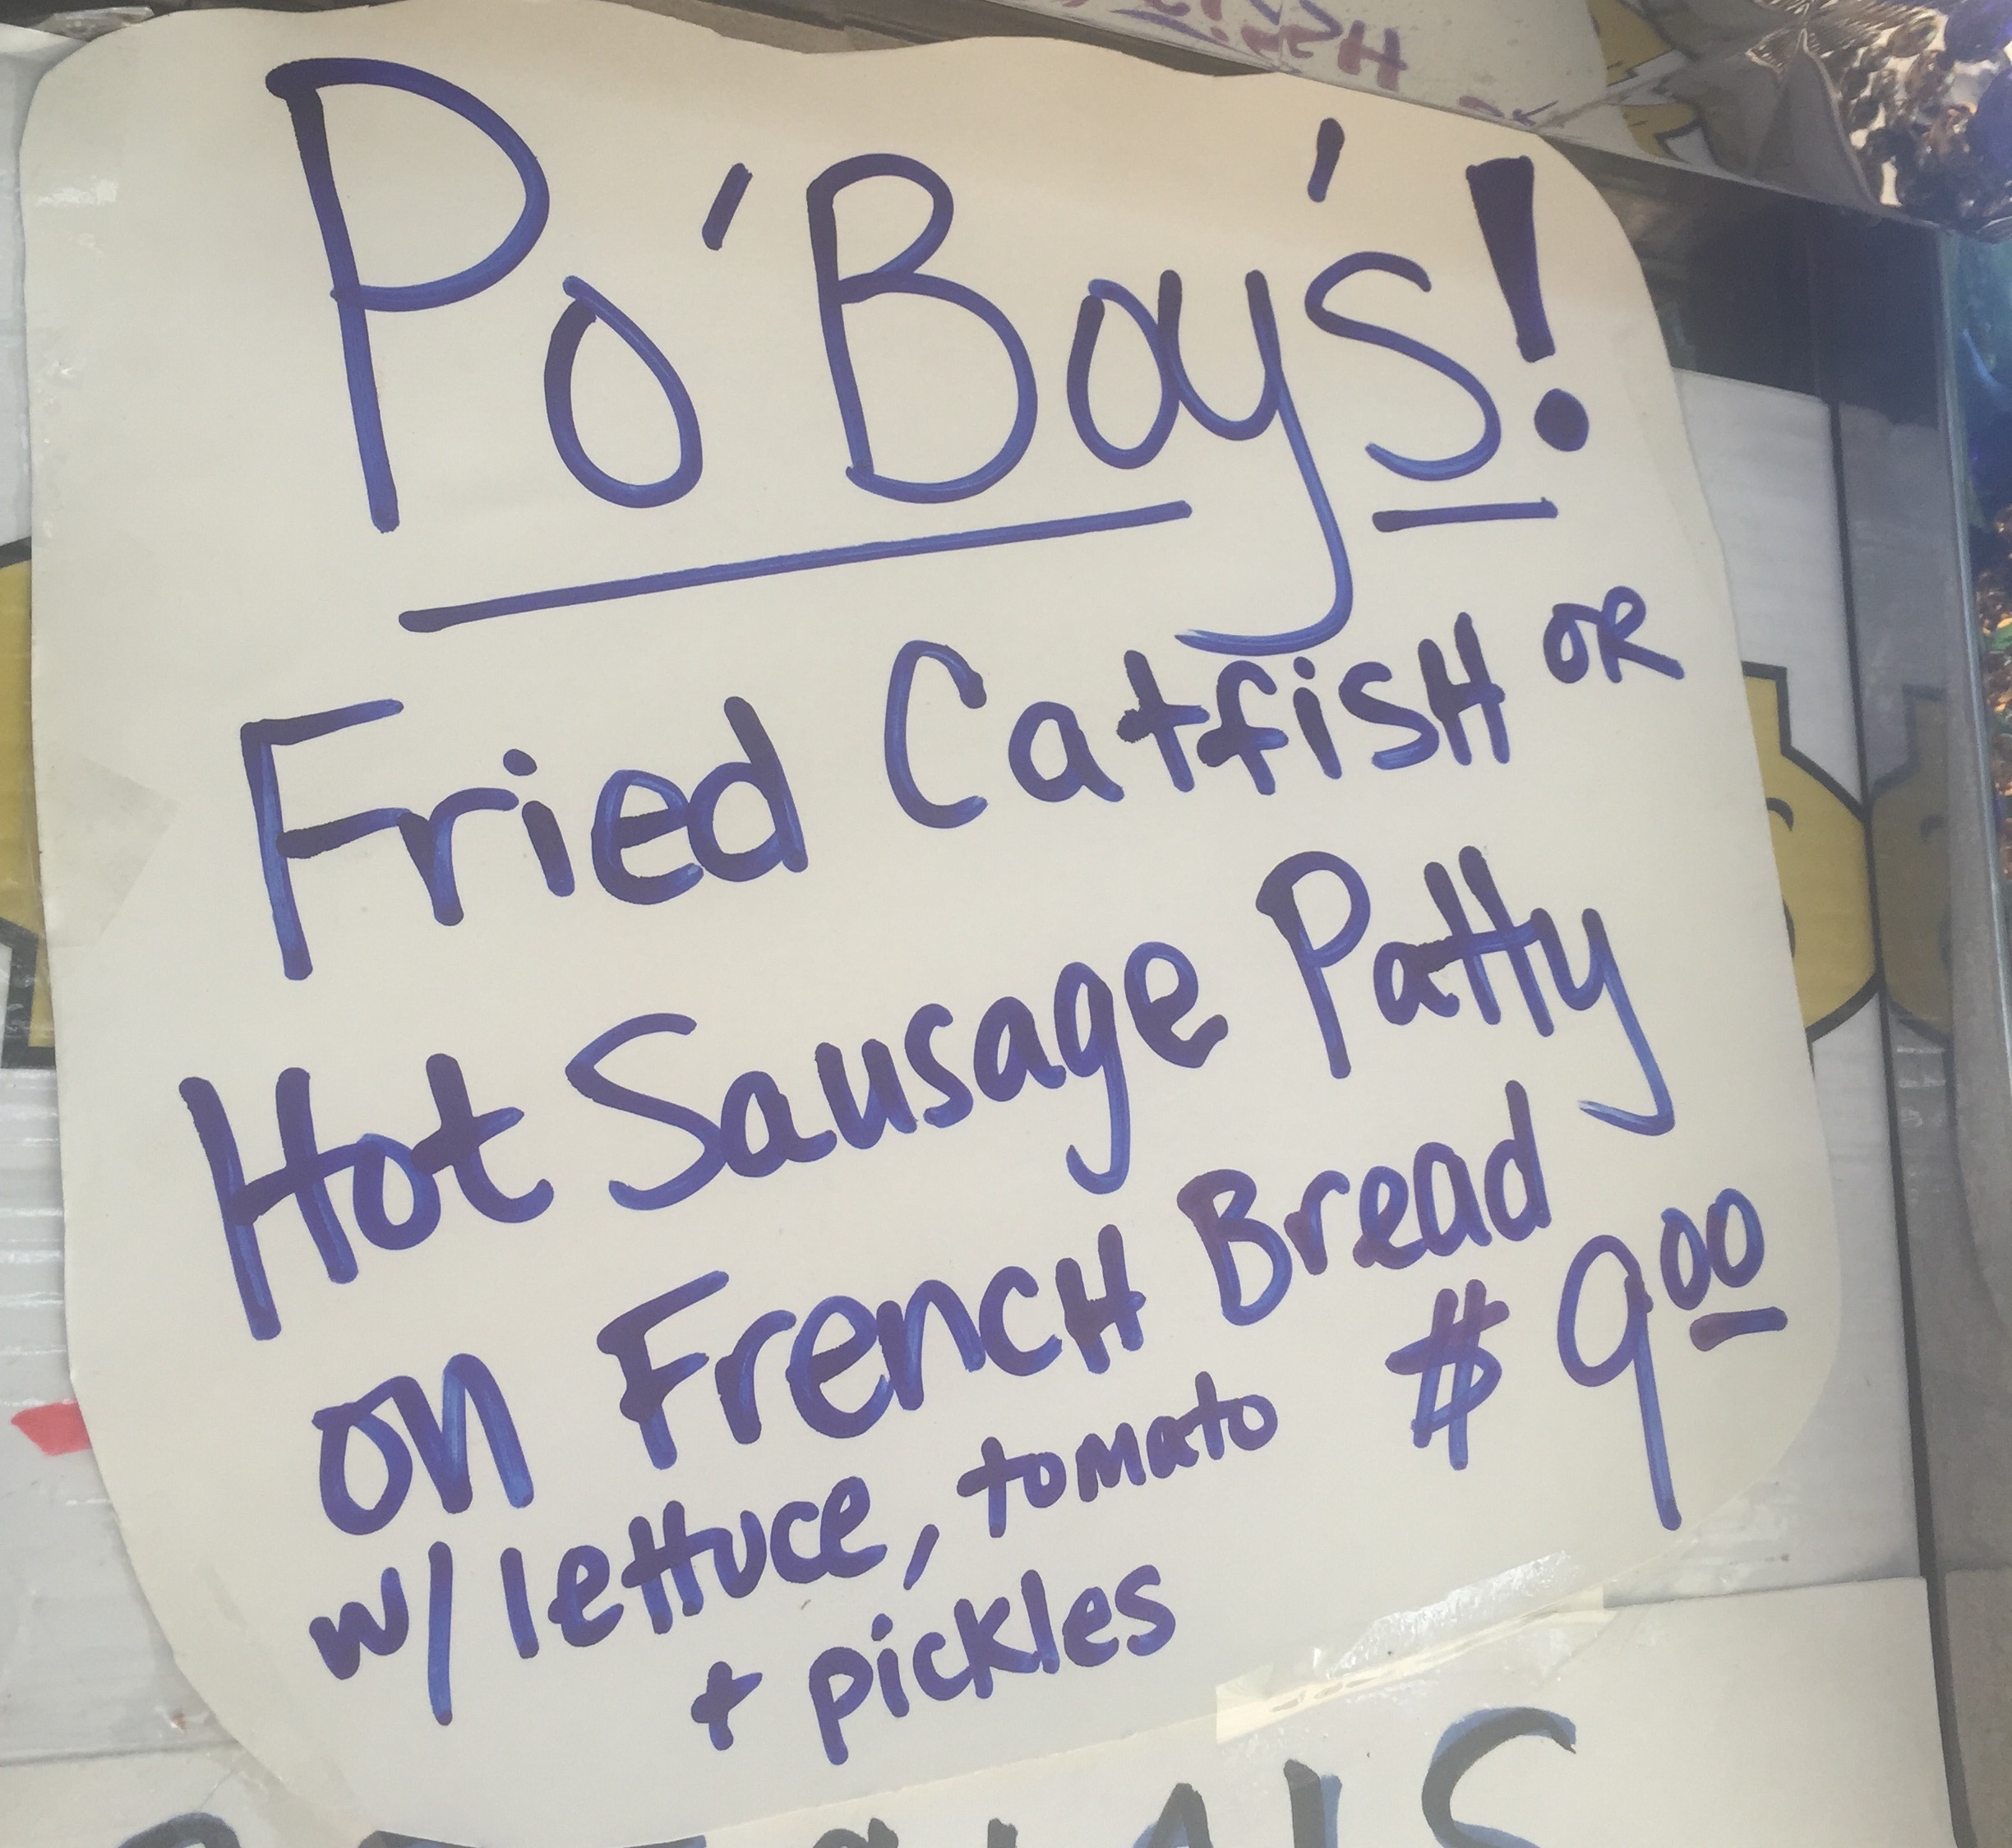 Po'Boy's!
Fried CatfisH OR
Hot Sausage Patty
on FrencH Bread
$9.00
w/ lettuce, tomato
+ pickles